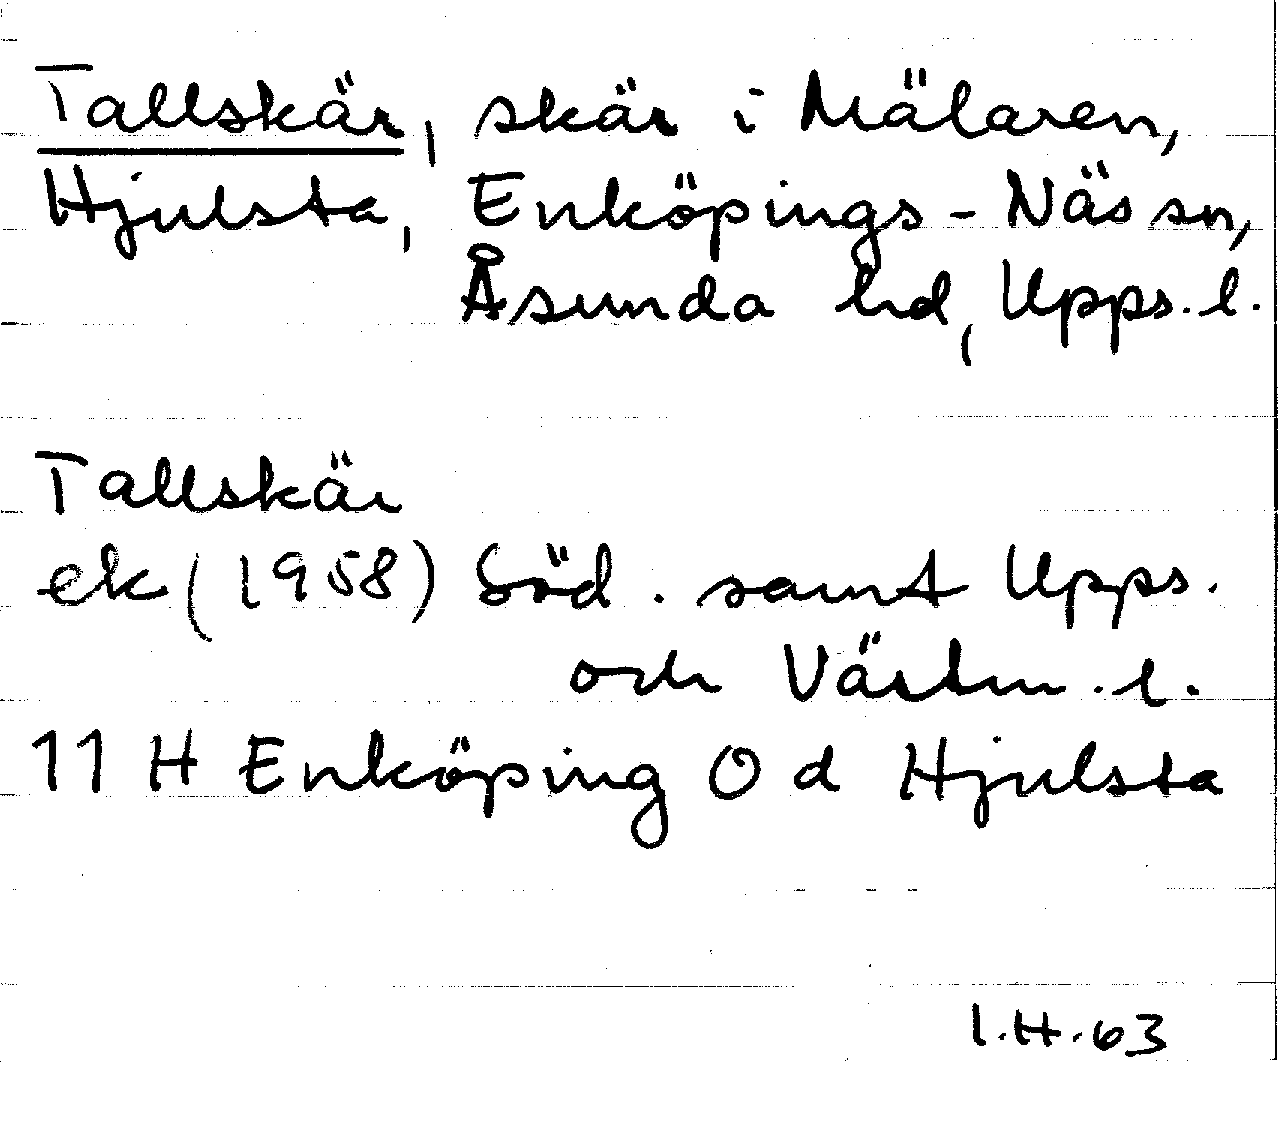 Tallskär, skär i Mälaren,
Hjulsta, Enköpings-Näs sn,
Åsunda hd, Upps. l.
Tallskär
ek (1958) Söd. samt Upps.
och Västm. l.
11 H Enköping O d Hjulsta
I.H.63